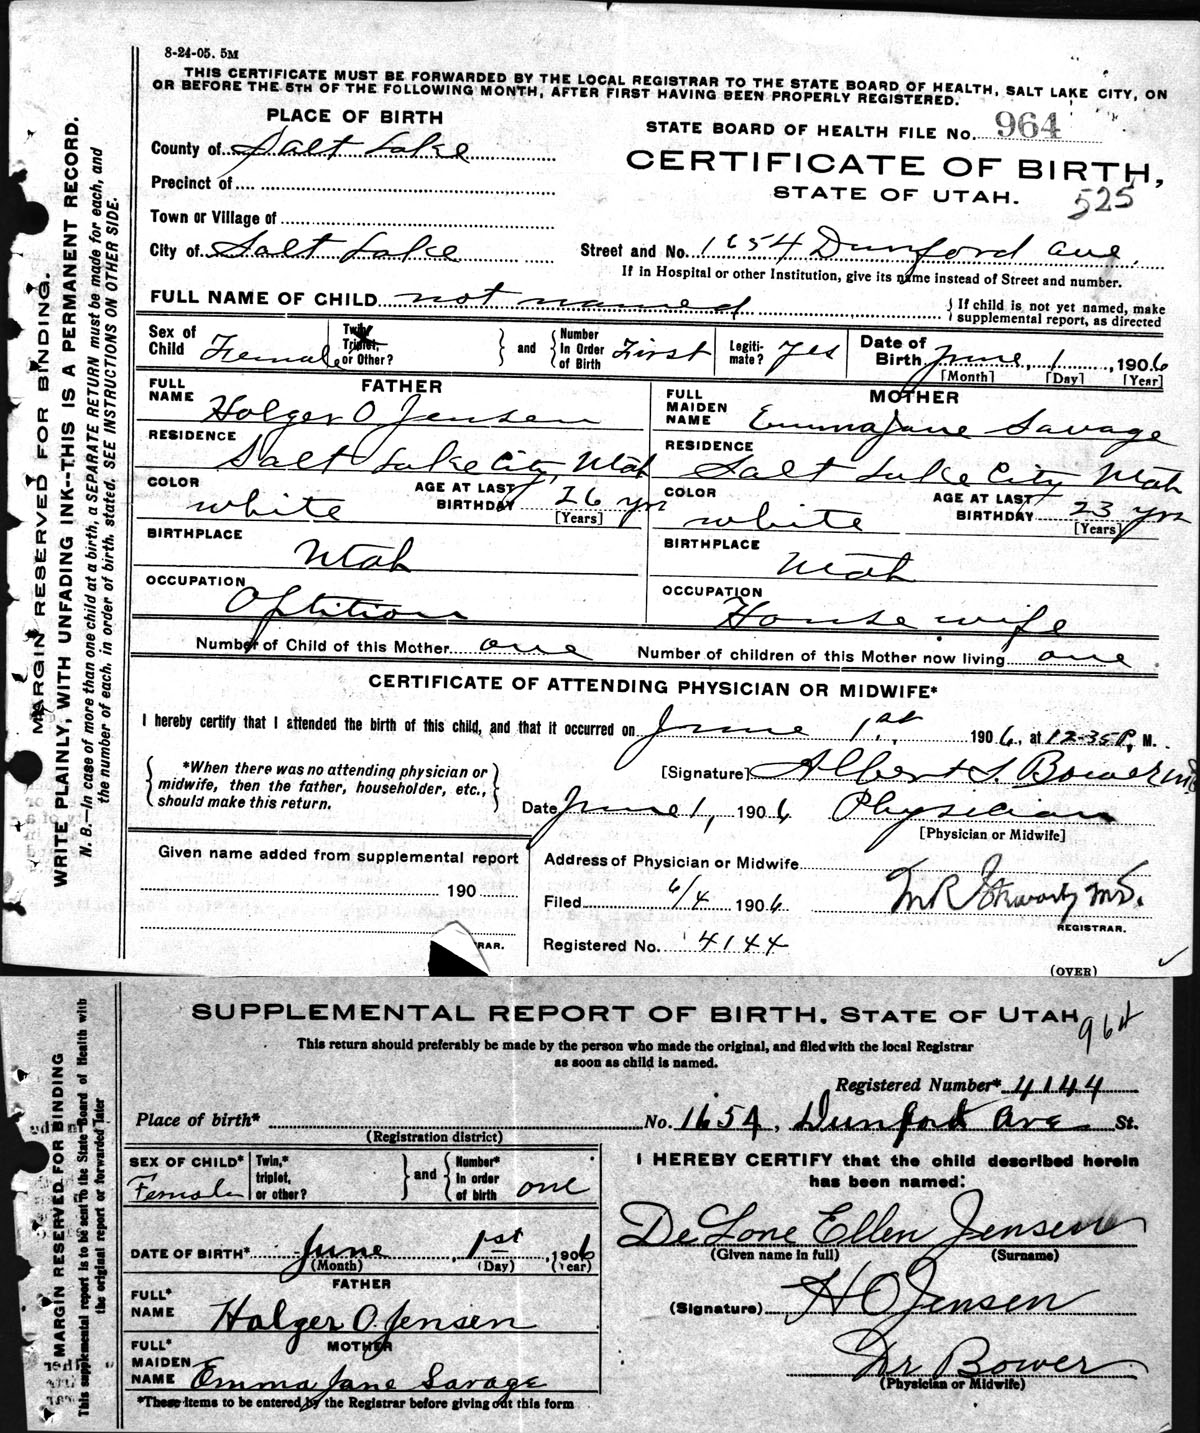 8-24-05. 5M
THIS CERTIFICATE MUST BE FORWARDED BY THE LOCAL REGISTRAR TO THE STATE BOARD OF HEALTH, SALT LAKE CITY, ON
OR BEFORE THE 5TH OF THE FOLLOWING MONTH, AFTER FIRST HAVING BEEN PROPERLY REGISTERED.
MARGIN RESERVED FOR BINDING.
WRITE PLAINLY, WITH UNFADING INK--THIS IS A PERMANENT RECORD.
N. B.—In case of more than one child at a birth, a SEPARATE RETURN must be made for each, and
the number of each, in order of birth, stated. SEE INSTRUCTIONS ON OTHER SIDE.
PLACE OF BIRTH
County of Salt Lake
Precinct of
Town or Village of
City of Salt Lake
STATE BOARD OF HEALTH FILE No. 964
CERTIFICATE OF BIRTH,
STATE OF UTAH.
525
Street and No. 1654 Dunford ave.
If in Hospital or other Institution, give its name instead of Street and number.
FULL NAME OF CHILD not named { If child is not yet named, make
supplemental report, as directed
Sex of Child Female Twin, Triplet, or Other? } and { Number In Order of Birth First Legiti- mate? Yes Date of Birth June 1, 1906
[Month] [Day] [Year]
FATHER
FULL NAME Holger O Jensen
RESIDENCE Salt Lake City, Utah
COLOR white AGE AT LAST BIRTHDAY 26 yrs
[Years]
BIRTHPLACE Utah
OCCUPATION Optition
MOTHER
FULL MAIDEN NAME Emma Jane Savage
RESIDENCE Salt Lake City Utah
COLOR white AGE AT LAST BIRTHDAY 23 yrs
[Years]
BIRTHPLACE Utah
OCCUPATION House wife
Number of Child of this Mother one Number of children of this Mother now living one
CERTIFICATE OF ATTENDING PHYSICIAN OR MIDWIFE*
I hereby certify that I attended the birth of this child, and that it occurred on June 1st 1906, at 12-35 P. M.
{ *When there was no attending physician or
midwife, then the father, householder, etc.,
should make this return. }
[Signature] Albert S. Bower MD
Date June 1, 1906 Physician
[Physician or Midwife]
Given name added from supplemental report
190
RAR.
Address of Physician or Midwife
Filed 6/4 1906
REGISTRAR.
Registered No. 4144
(OVER)
MARGIN RESERVED FOR BINDING
This supplemental report is to be sent to the State Board of Health with
the original report or forwarded later
SUPPLEMENTAL REPORT OF BIRTH, STATE OF UTAH
964
This return should preferably be made by the person who made the original, and filed with the local Registrar
as soon as child is named.
Registered Number* 4144
Place of birth* No. 1654, Dunford Ave St.
(Registration district)
SEX OF CHILD* Female Twin,* triplet, or other? } and { Number* in order of birth one
DATE OF BIRTH* June 1st, 1906
(Month) (Day) (Year)
FATHER
FULL* NAME Holger O. Jensen
MOTHER
FULL* MAIDEN NAME Emma Jane Savage
*These items to be entered by the Registrar before giving out this form
I HEREBY CERTIFY that the child described herein
has been named:
De Lone Ellen Jensen
(Given name in full) (Surname)
(Signature) H O Jensen
Dr. Bower
(Physician or Midwife)